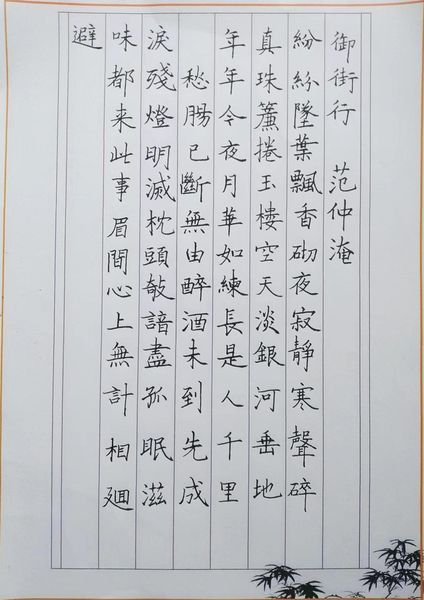 御街行 范仲淹
紛紛墜葉飄香砌夜寂靜寒聲碎
真珠簾捲玉樓空天淡銀河垂地
年年今夜月華如練長是人千里
愁腸已斷無由醉酒未到先成
淚殘燈明滅枕頭攲諳盡孤眠滋
味都来此事眉間心上無計相廻
避